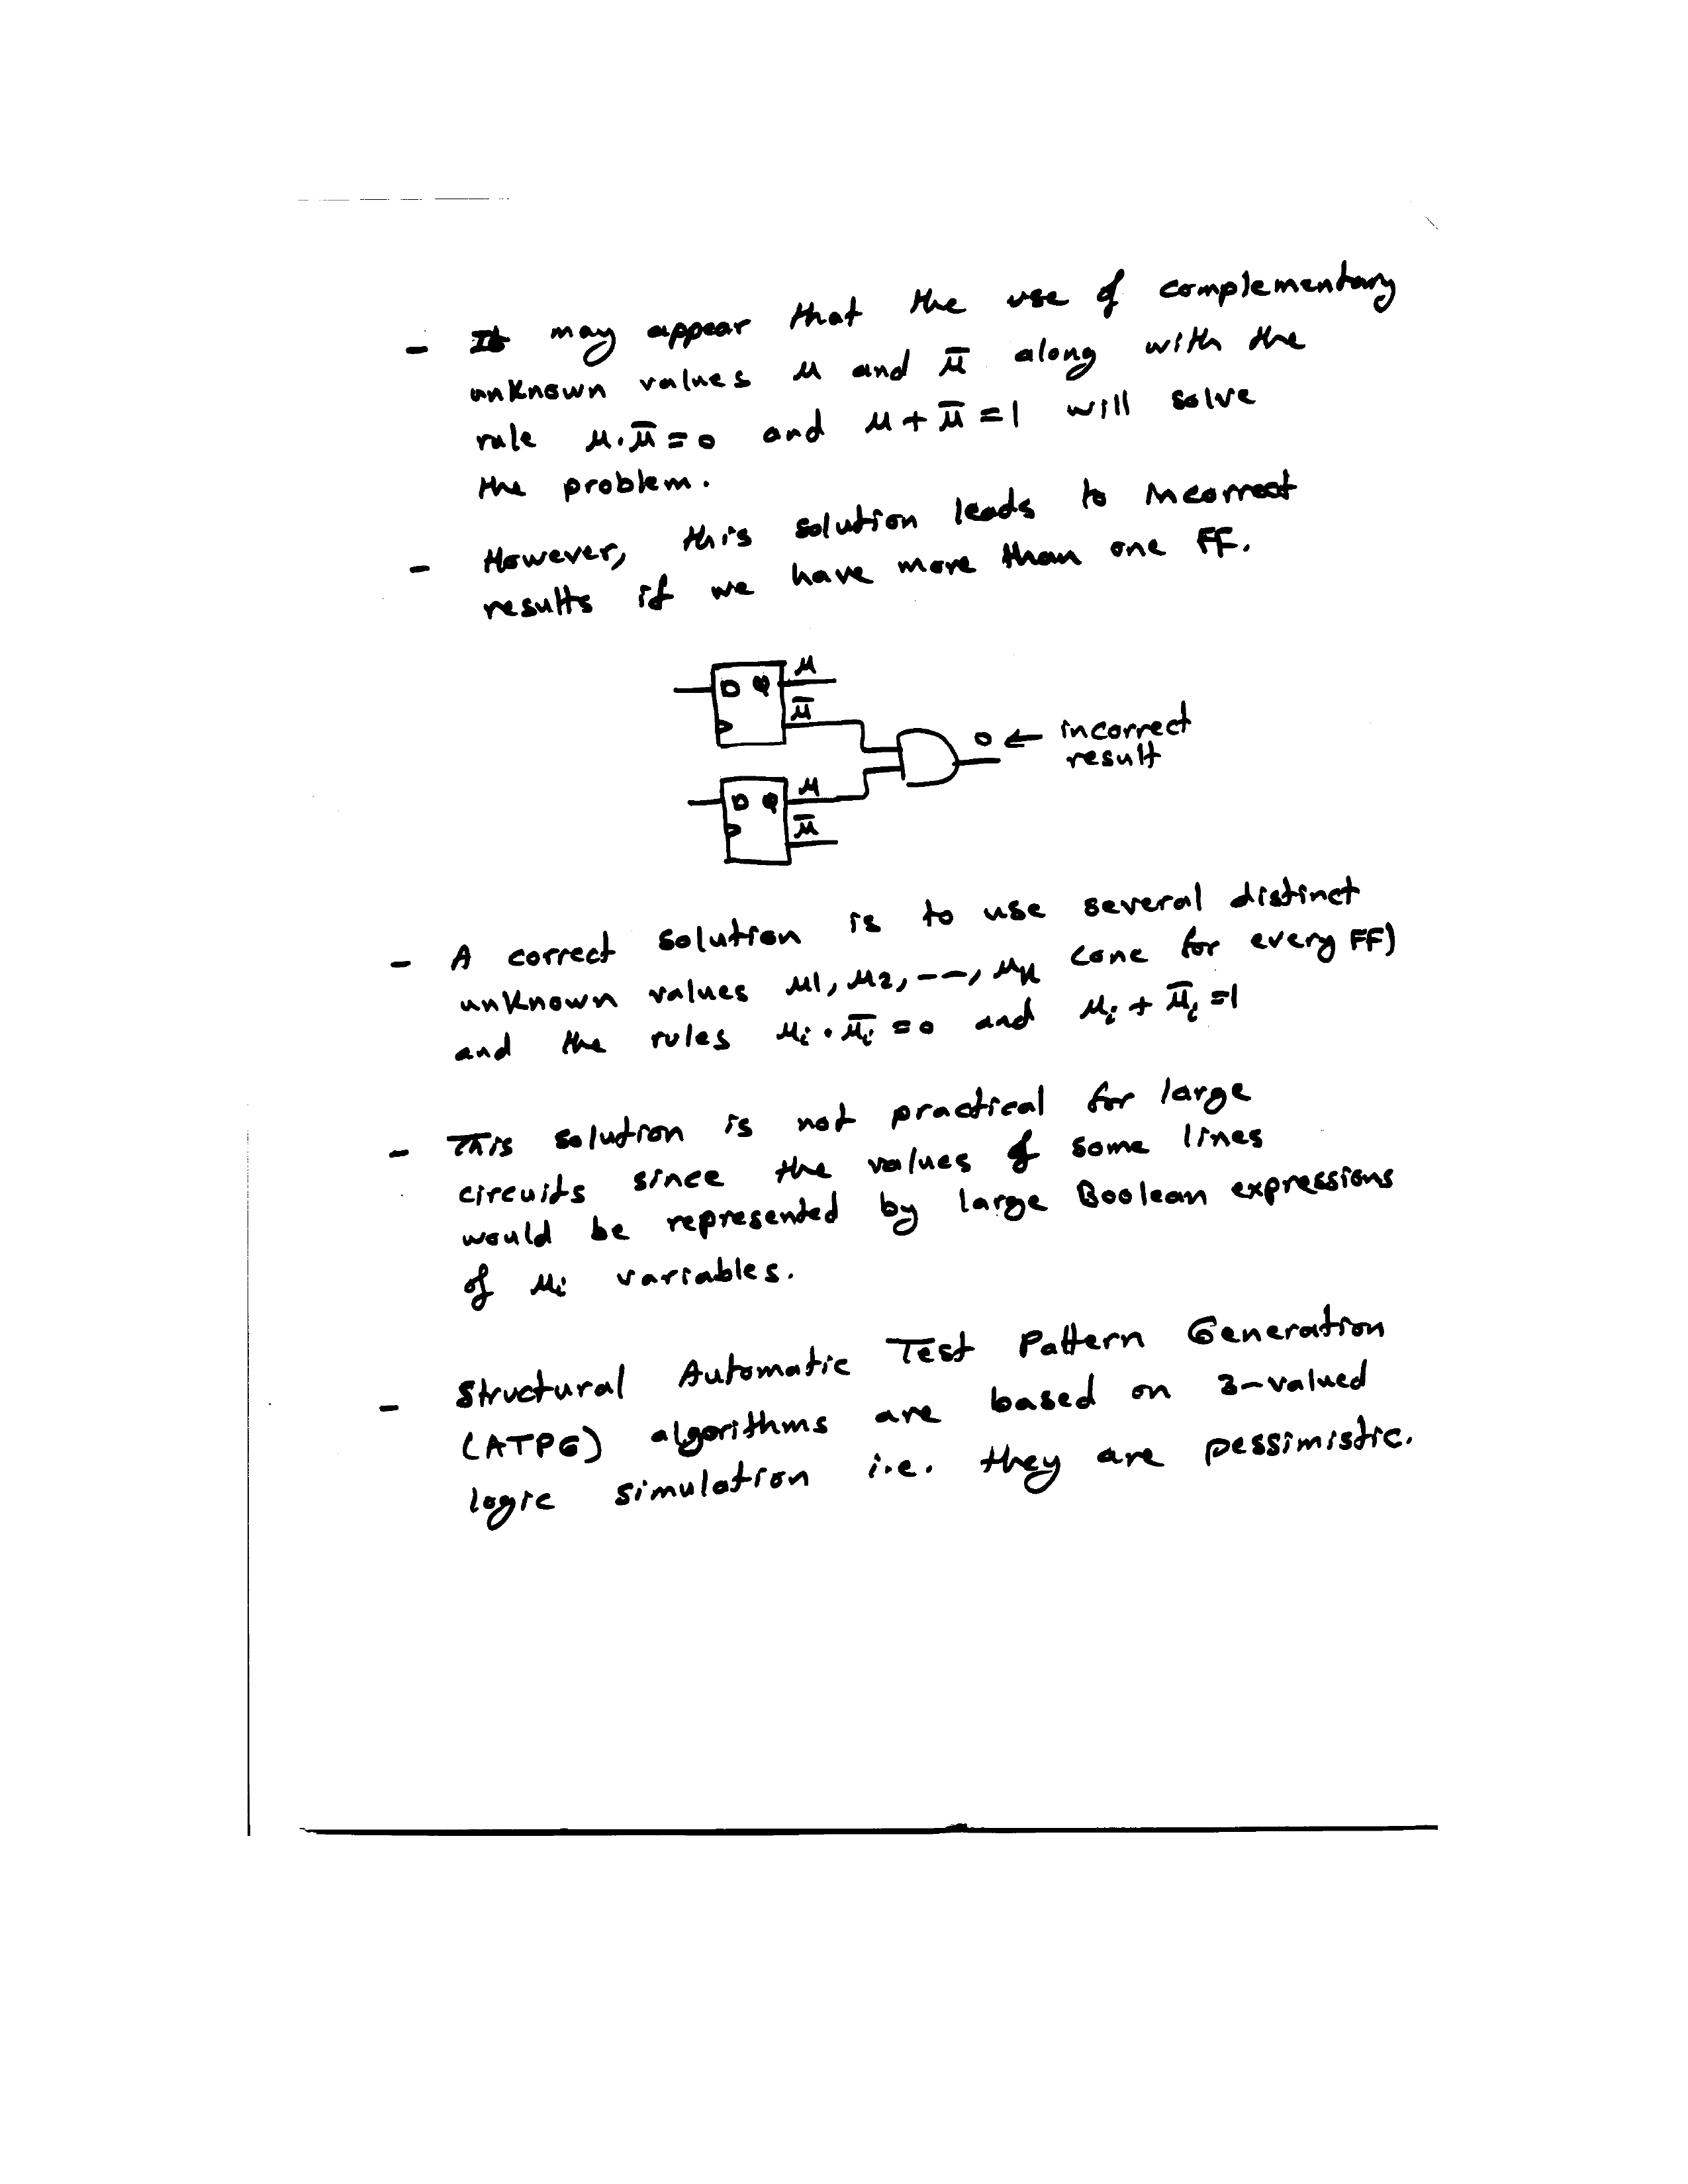 - It may appear that the use of complementary
unknown values u and ū along with the
rule u.ū=0 and u+ū=1 will solve
the problem.
- However, this solution leads to incorrect
results if we have more than one FF.
u
D Q
ū
0 ← incorrect
result
u
D Q
ū
- A correct solution is to use several distinct
unknown values u1, u2, ---, uk (one for every FF)
and the rules ui . ūi = 0 and ui + ūi = 1
- This solution is not practical for large
circuits since the values of some lines
would be represented by large Boolean expressions
of ui variables.
- Structural Automatic Test Pattern Generation
(ATPG) algorithms are based on 3-valued
logic simulation i.e. they are pessimistic.